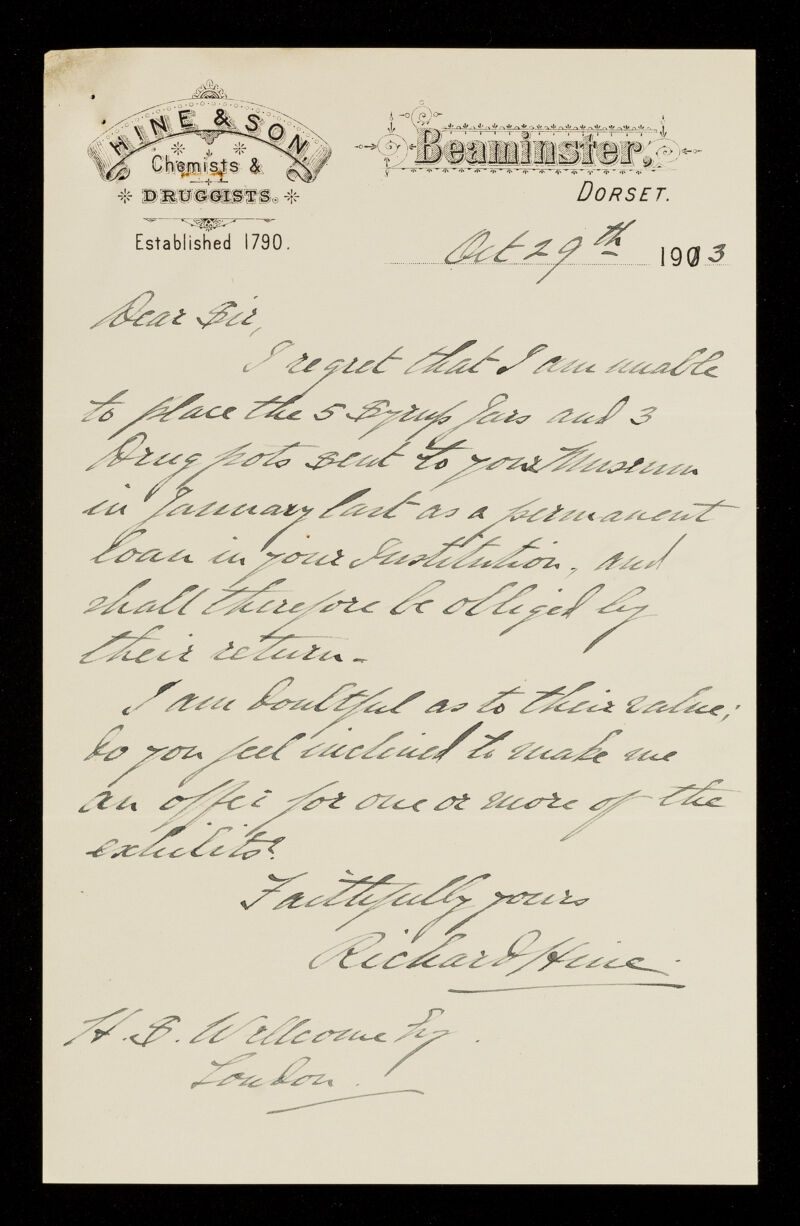 HINE & SON,
Chemists &
DRUGGISTS.
Established 1790.
Beaminster,
DORSET.
Oct 29th 1913
Dear Sir,
I regret that I am unable
to place the 5 Syrup Jars and 3
Drug pots sent to your Museum
in January last as a permanent
loan in your Institution, and
shall therefore be obliged by
their return -
I am doubtful as to their value;
do you feel inclined to make me
an offer for one or more of the
exhibits?
Faithfully yours
Richard Hine.
H. S. Wellcome Esq.
London.